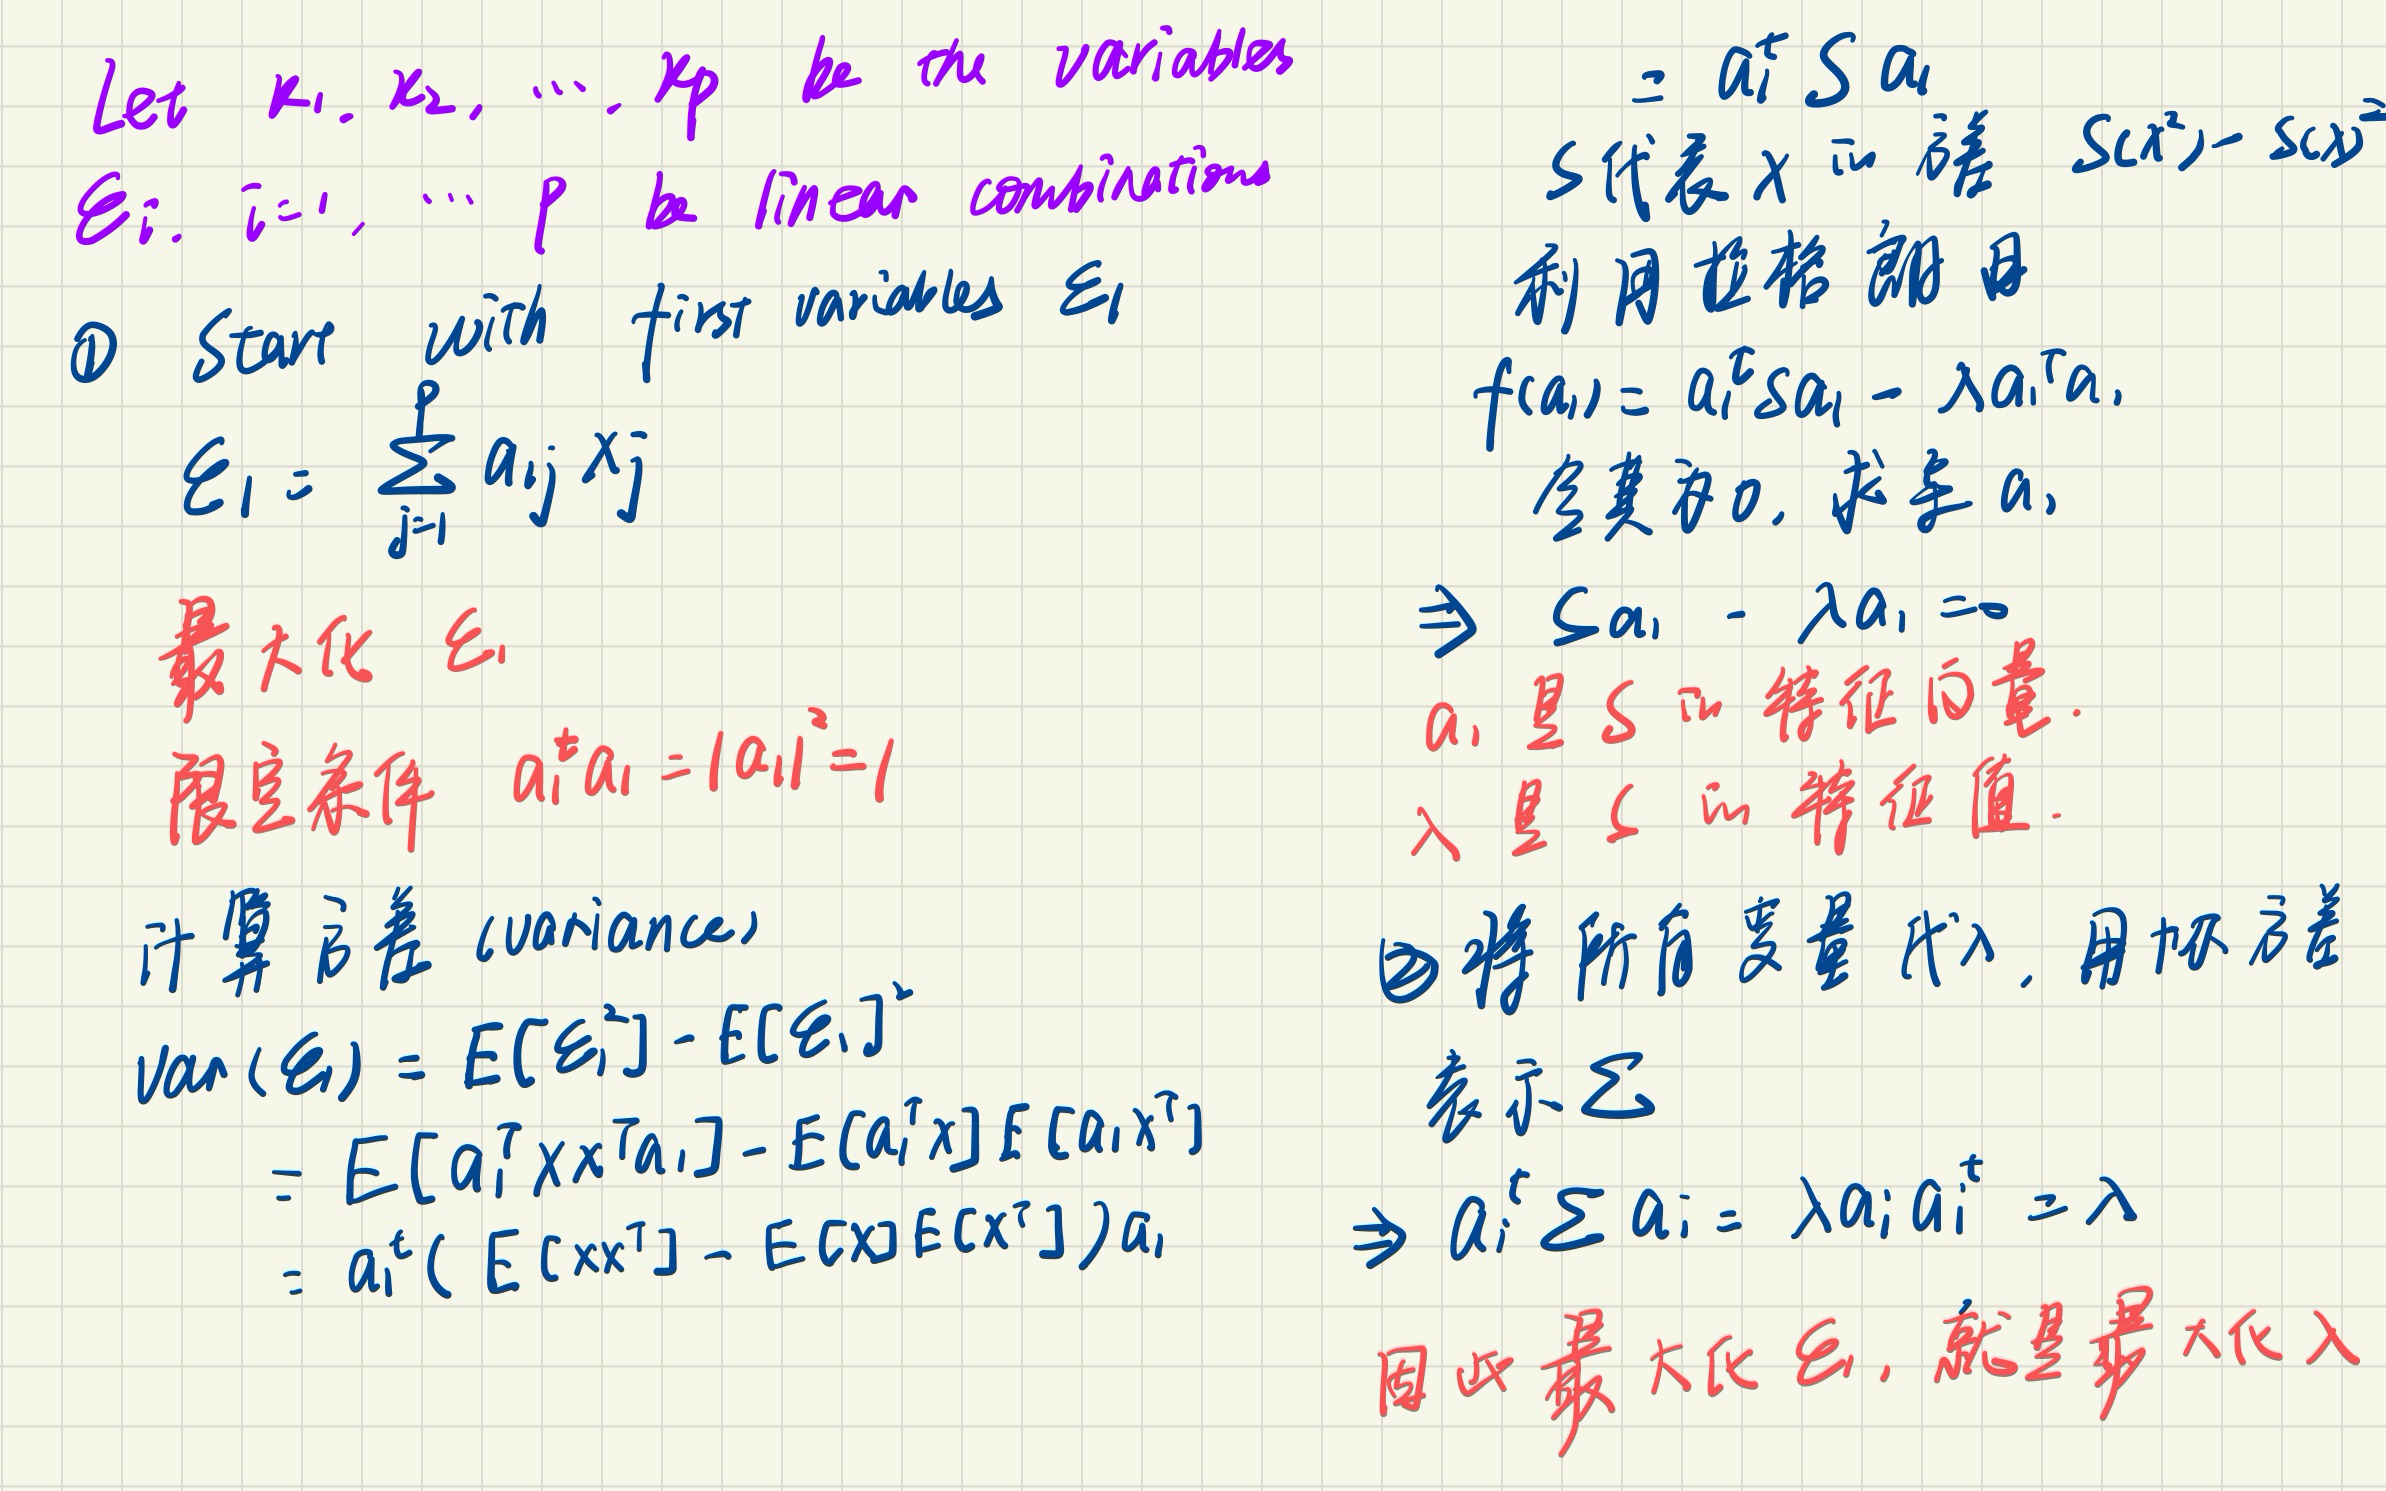 Let x₁, x₂, …, xₚ be the variables
ξᵢ, i=1, … p be linear combinations
① Start with first variables ξ₁
ξ₁ = ∑_{j=1}^{p} a₁ⱼ xⱼ
最大化 ξ₁
限定条件 a₁ᵗa₁ = |a₁|² = 1
计算方差 (variance)
var(ξ₁) = E[ξ₁²] - E[ξ₁]²
= E[a₁ᵀxxᵀa₁] - E[a₁ᵀx]E[a₁xᵀ]
= a₁ᵗ(E[xxᵀ] - E[x]E[xᵀ])a₁
= a₁ᵗSa₁
S代表x的方差 S(x²) - S(x)²
利用拉格朗日
f(a₁) = a₁ᵗSa₁ - λa₁ᵀa₁
令其为0, 求导a₁
⇒ Sa₁ - λa₁ = 0
a₁是S的特征向量.
λ是S的特征值.
②将所有变量代入, 用协方差
表示∑
⇒ aᵢᵗ∑aᵢ = λaᵢaᵢᵗ = λ
因此最大化ξ₁, 就是最大化λ